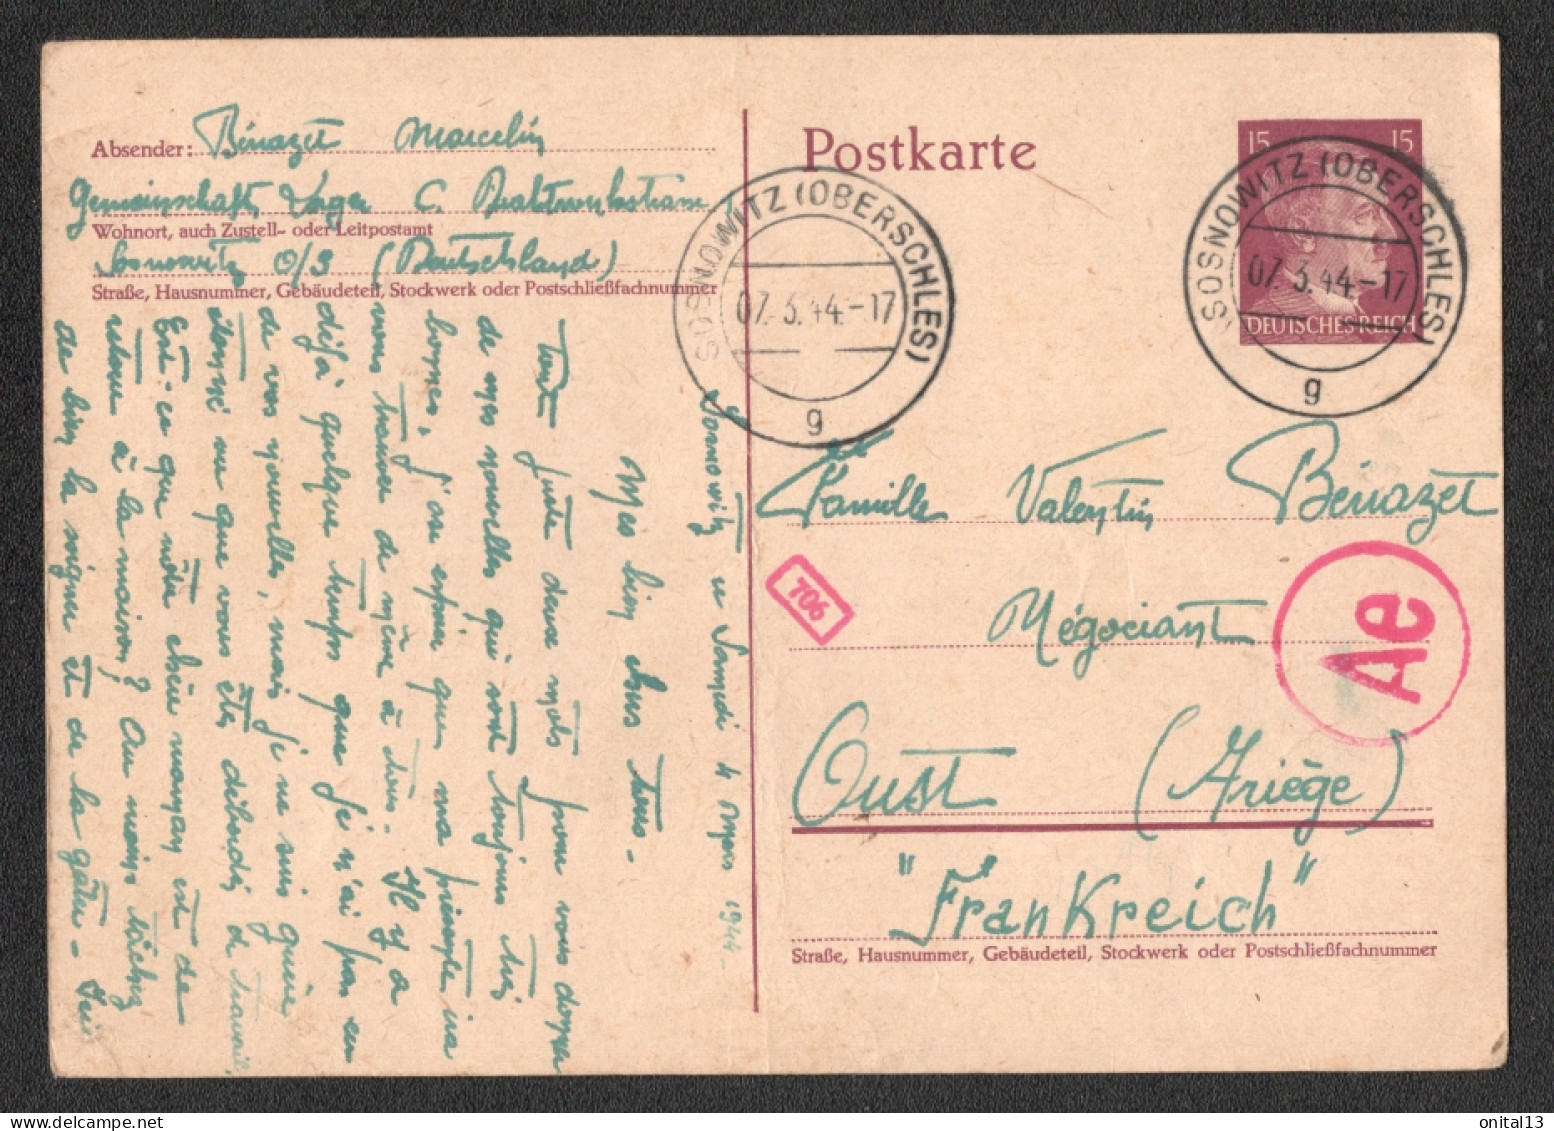 Absender: Bénazet Marcelin
Gemeinschafts Lager C.
Wohnort, auch Zustell- oder Leitpostamt
Sosnowitz O/S (Deutschland)
Straße, Hausnummer, Gebäudeteil, Stockwerk oder Postschließfachnummer
Postkarte
15 15
DEUTSCHES REICH
SOSNOWITZ (OBERSCHLES)
07.3.44.-17
g
SOSNOWITZ (OBERSCHLES)
07.3.44.-17
g
Famille Valentin Bénazet
706
Négociant
Ae
Oust (Ariège)
"Frankreich"
Straße, Hausnummer, Gebäudeteil, Stockwerk oder Postschließfachnummer
Sosnowitz le Samedi 4 Mars 1944-
Mes bien chers tous-
Tout juste deux mots pour vous donner
de mes nouvelles qui sont toujours très
bonnes, j'ose espérer que ma présente ira
vous trouver de même à tous- Il y a
déjà quelque temps que je n'ai pas eu
de vos nouvelles, mais je ne suis guère
étonné vu que vous êtes débordés de travail,
Est-ce que notre chère maman est de
retour à la maison? Au moins tâchez
de bien la soigner et de la gâter-
onital13